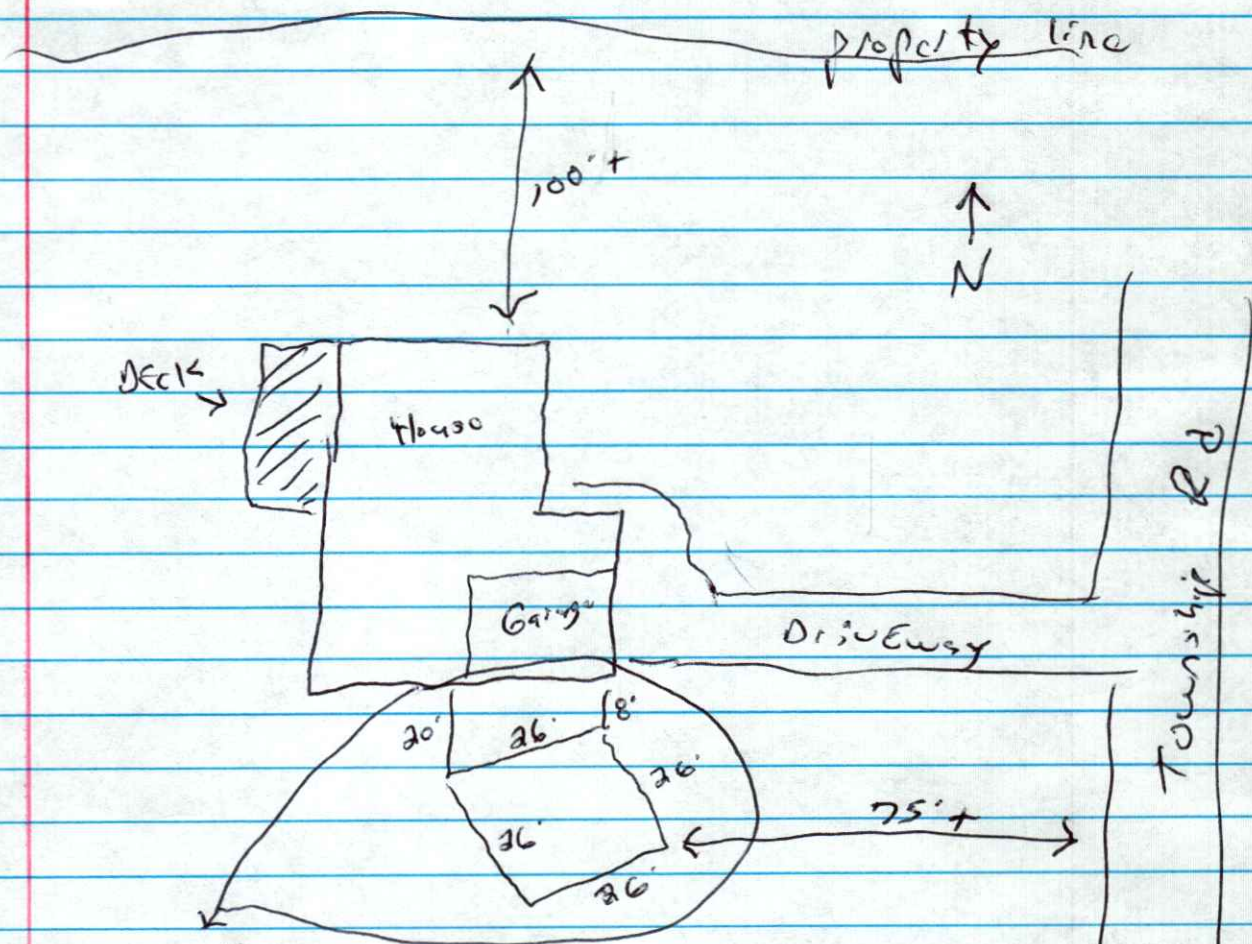 property line
100'+
N
DEck
House
Garage
DrivEway
Township Rd
20'
26'
8'
26'
26'
26'
75'+